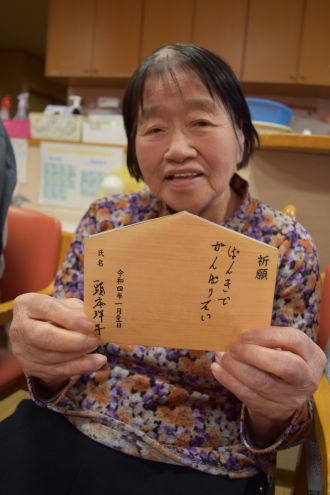 祈願
げんきで
がんばりたい
令和四年一月吉日
氏名